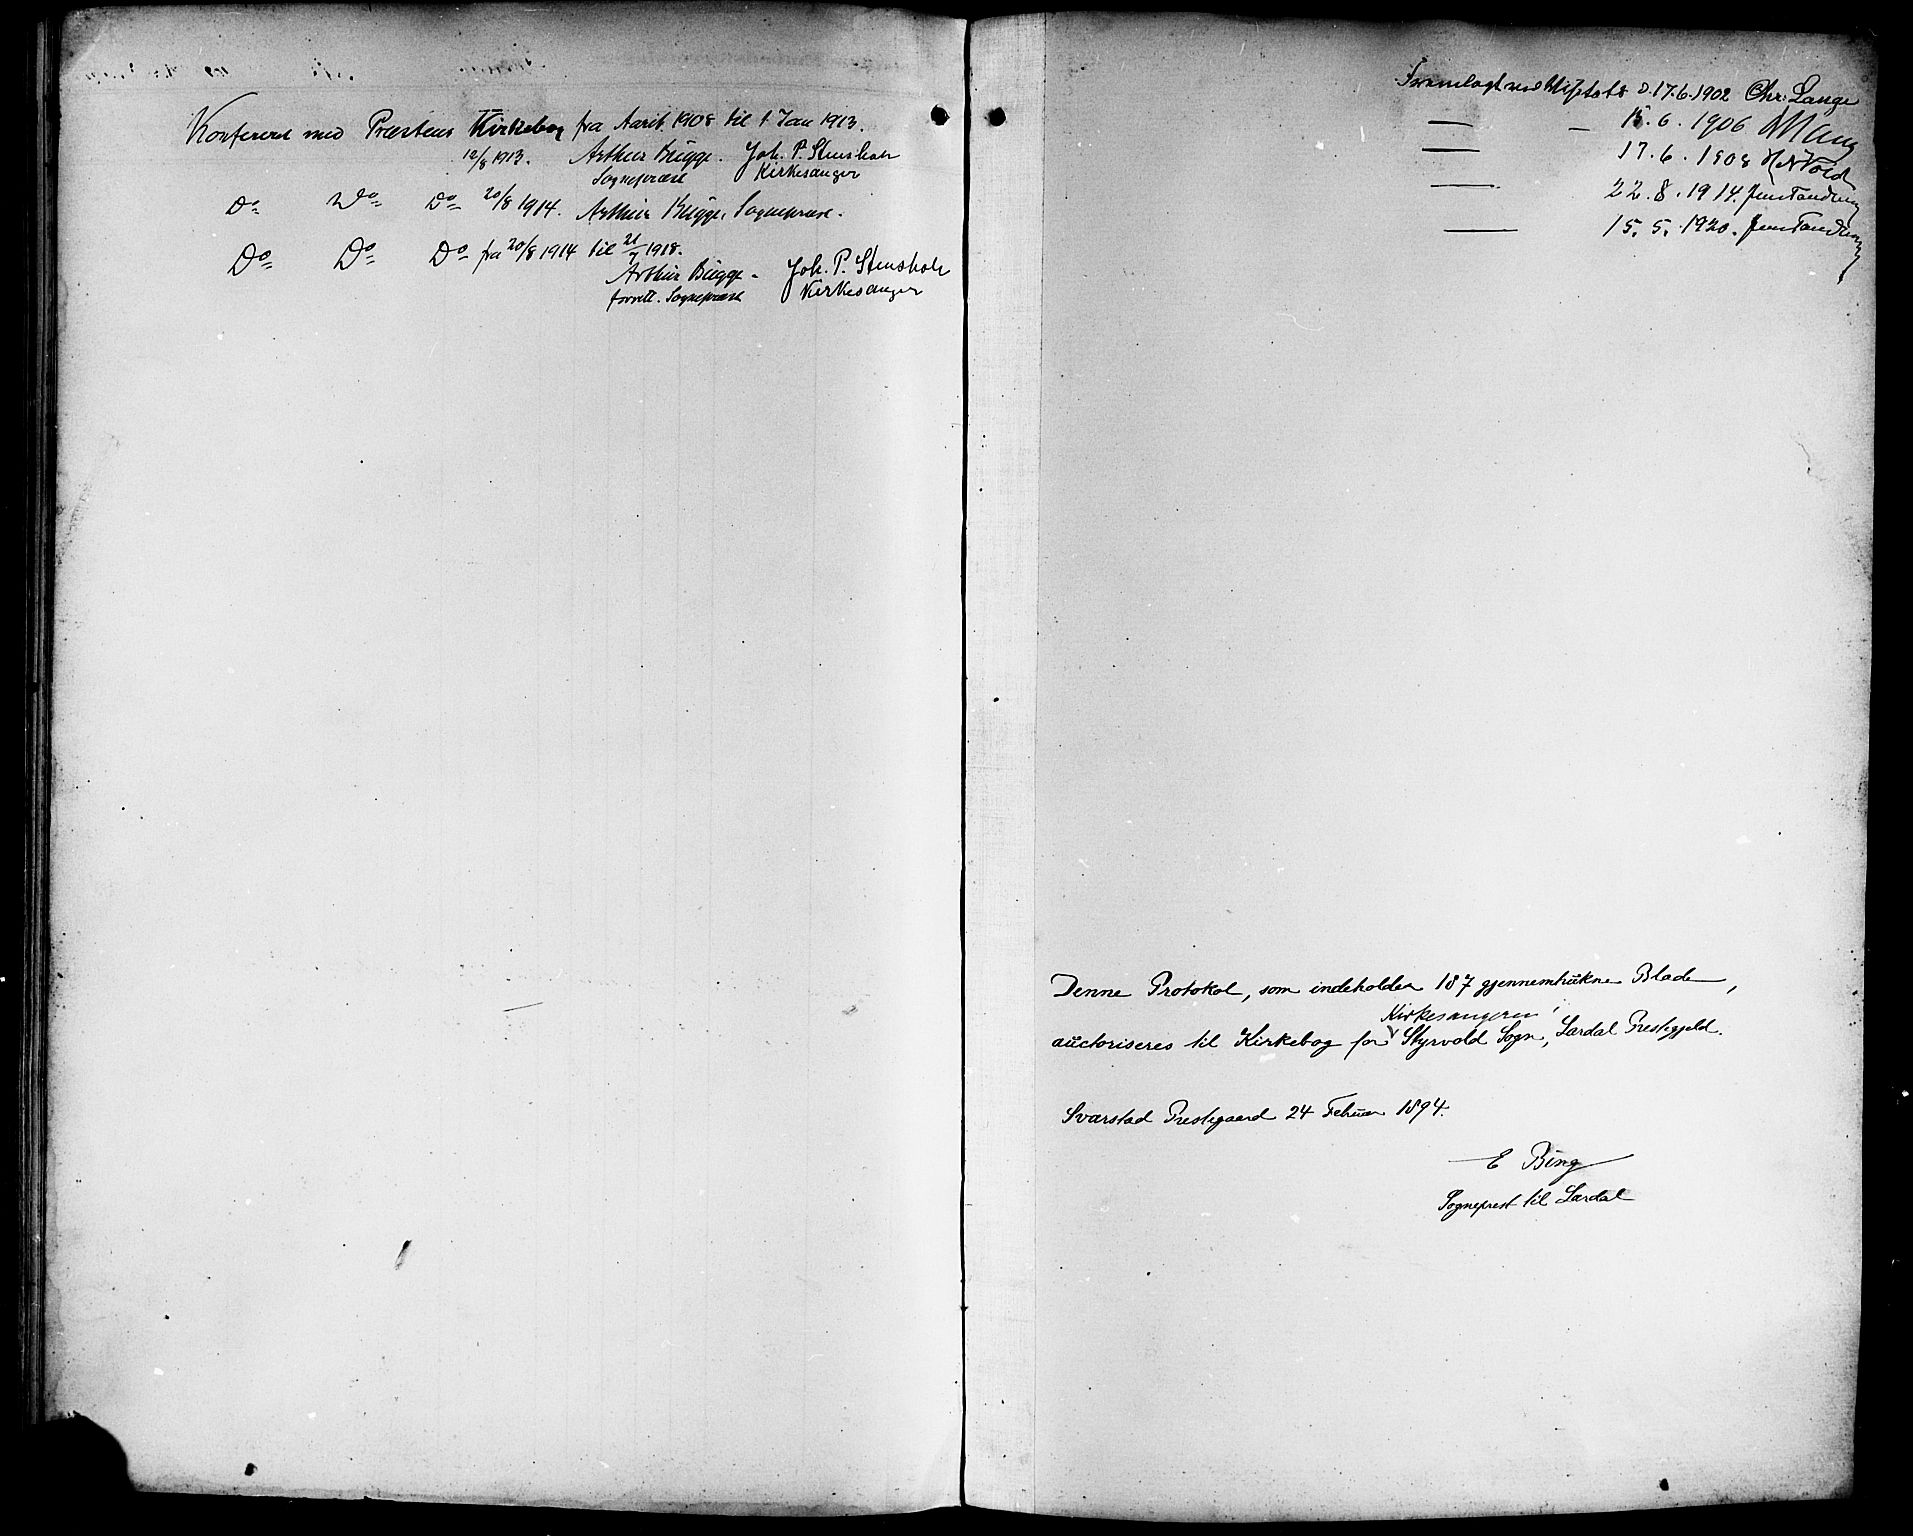 Konfereret med Præstens Kirkebog fra Aarit. 1908 til 1 Jan 1913.
12/8 1913. Arthur Bugge. Joh. P. Stensholt
Sognepræst Kirkesanger
Do Do Do 20/8 1914. Arthur Bugge, Sognepræst.
Do Do Do fra 20/8 1914 til 21/7 1918.
Arthur Bugge - Joh. P. Stensholt
forrett. Sognepræst Kirkesanger
Fremlagt ved Visitats d. 17.6.1902 Chr. Lange
— — 15.6.1906
— 17.6.1908
— 22.8.1914. Jens Tandberg
— 15.5.1920. Jens Tandberg
Denne Protokol, som indeholder 187 gjennemtrukne Blade,
Kirkesangeren i
auctoriseres til Kirkebog for Styrvold Sogn, Lardal Prestegjeld.
Svarstad Prestegaard 24 Februar 1894.
E Bing
Sogneprest til Lardal